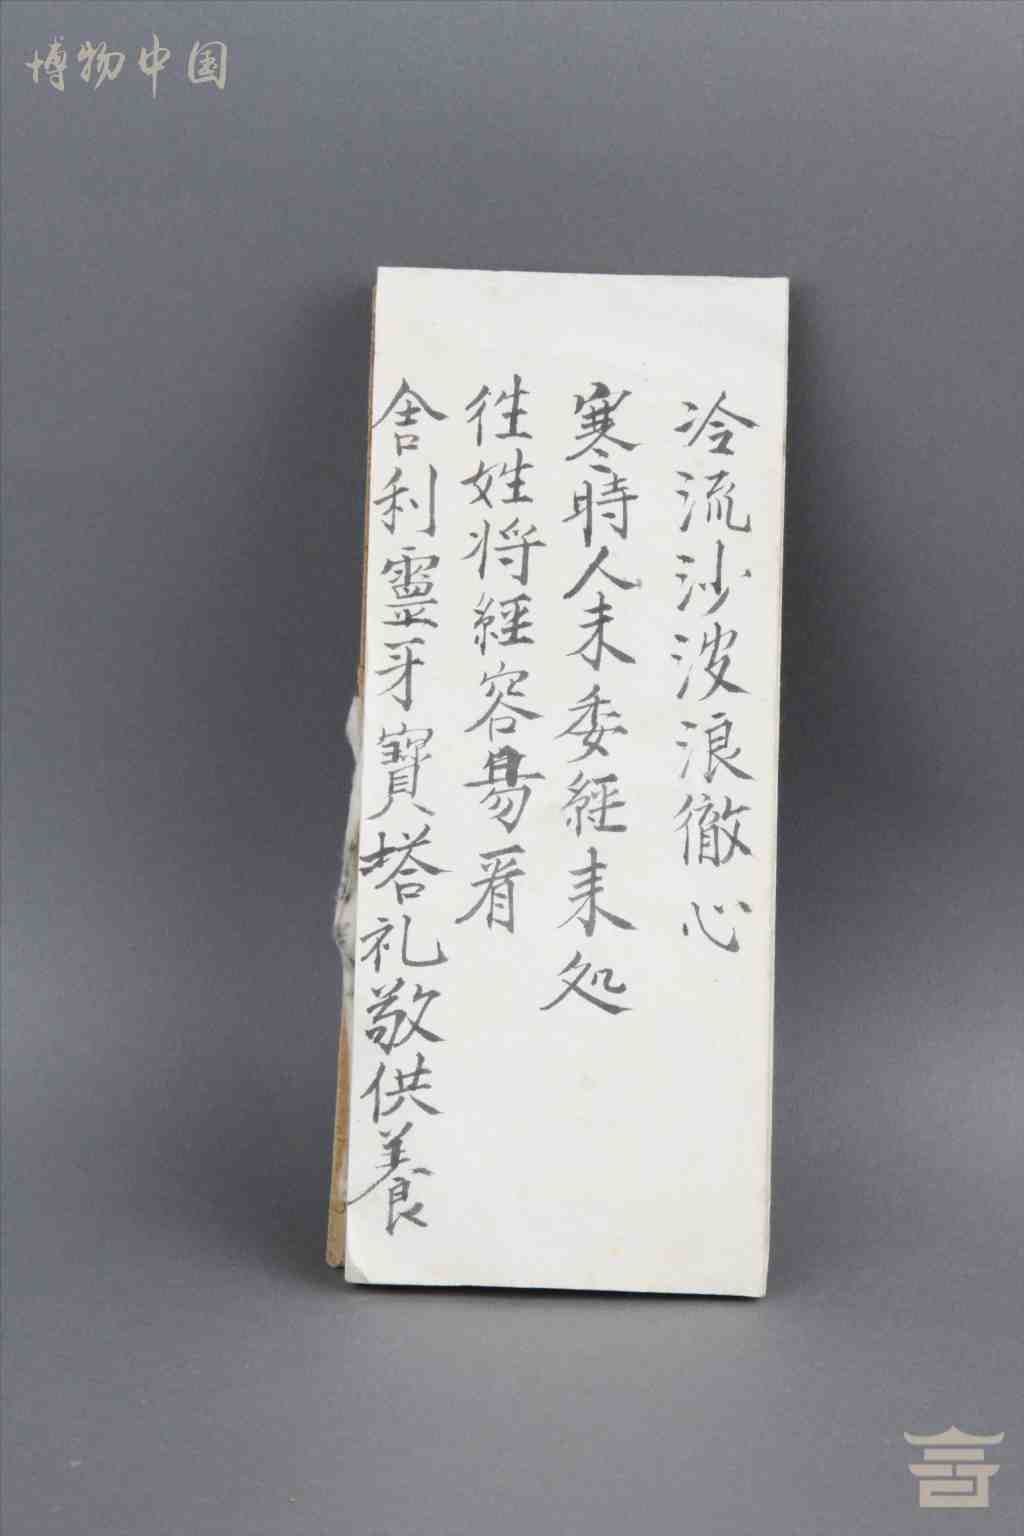 博物中国
冷流沙波浪徹心
寒時人未委經来处
徃姓将經容昜看
舎利靈牙寳塔礼敬供養